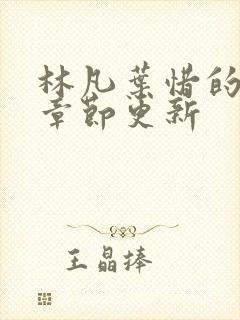 林凡葉惜的
章節更新
王晶捧